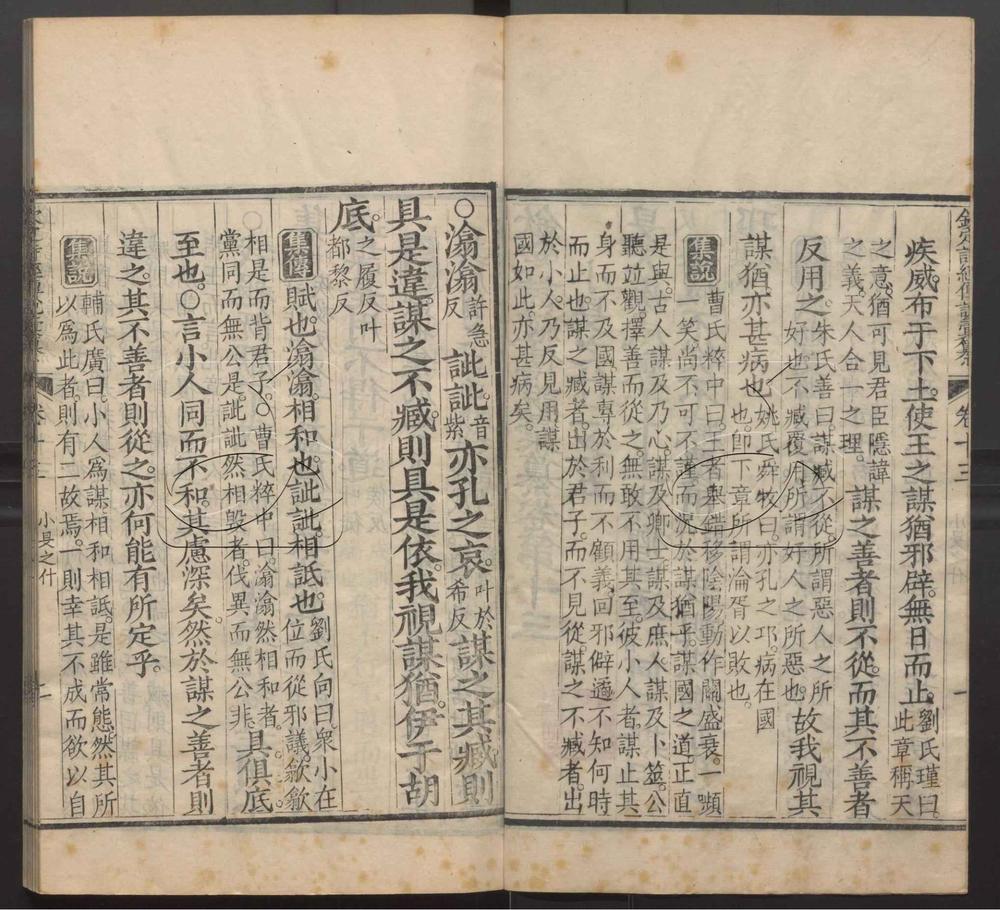 疾威布于下土使王之謀猶邪辟無日而止劉氏瑾曰此章稱天
之意猶可見君臣隱諱之義天人合一之理謀之善者則不從而其不善者
反用之朱氏善曰謀臧不從所謂惡人之所好也不臧覆用所謂好人之所惡也故我視其
謀猶亦甚病也姚氏舜牧曰亦孔之邛病在國也卽下章所謂淪胥以敗也
集說曹氏粹中曰王者舉錯移陰陽動作關盛衰一嚬
一笑尚不可不謹而況於謀猶乎謀國之道正直
是與古人謀及乃心謀及卿士謀及庶人謀及卜筮公
聽竝觀擇善而從之無敢不用其至彼小人者謀止其
身而不及國謀專於利而不顧義回邪僻遹不知何時
而止也謀之臧者出於君子而不見從謀之不臧者出
於小人乃反見用謀
國如此亦甚病矣
卷十三
一
○潝潝許急反訿訿音紫亦孔之哀叶於希反謀之其臧則
具是違謀之不臧則具是依我視謀猶伊于胡
底之履反叶都黎反
集傳賦也潝潝相和也訿訿相詆也劉氏向曰衆小在位而從邪議歙歙
相是而背君子○曹氏粹中曰潝潝然相和者黨同而無公是訿訿然相毀者伐異而無公非具俱底
至也○言小人同而不和其慮深矣然於謀之善者則
違之其不善者則從之亦何能有所定乎
集說輔氏廣曰小人爲謀相和相詆是雖常態然其所
以爲此者則有二故焉一則幸其不成而欲以自
小旻之什
二